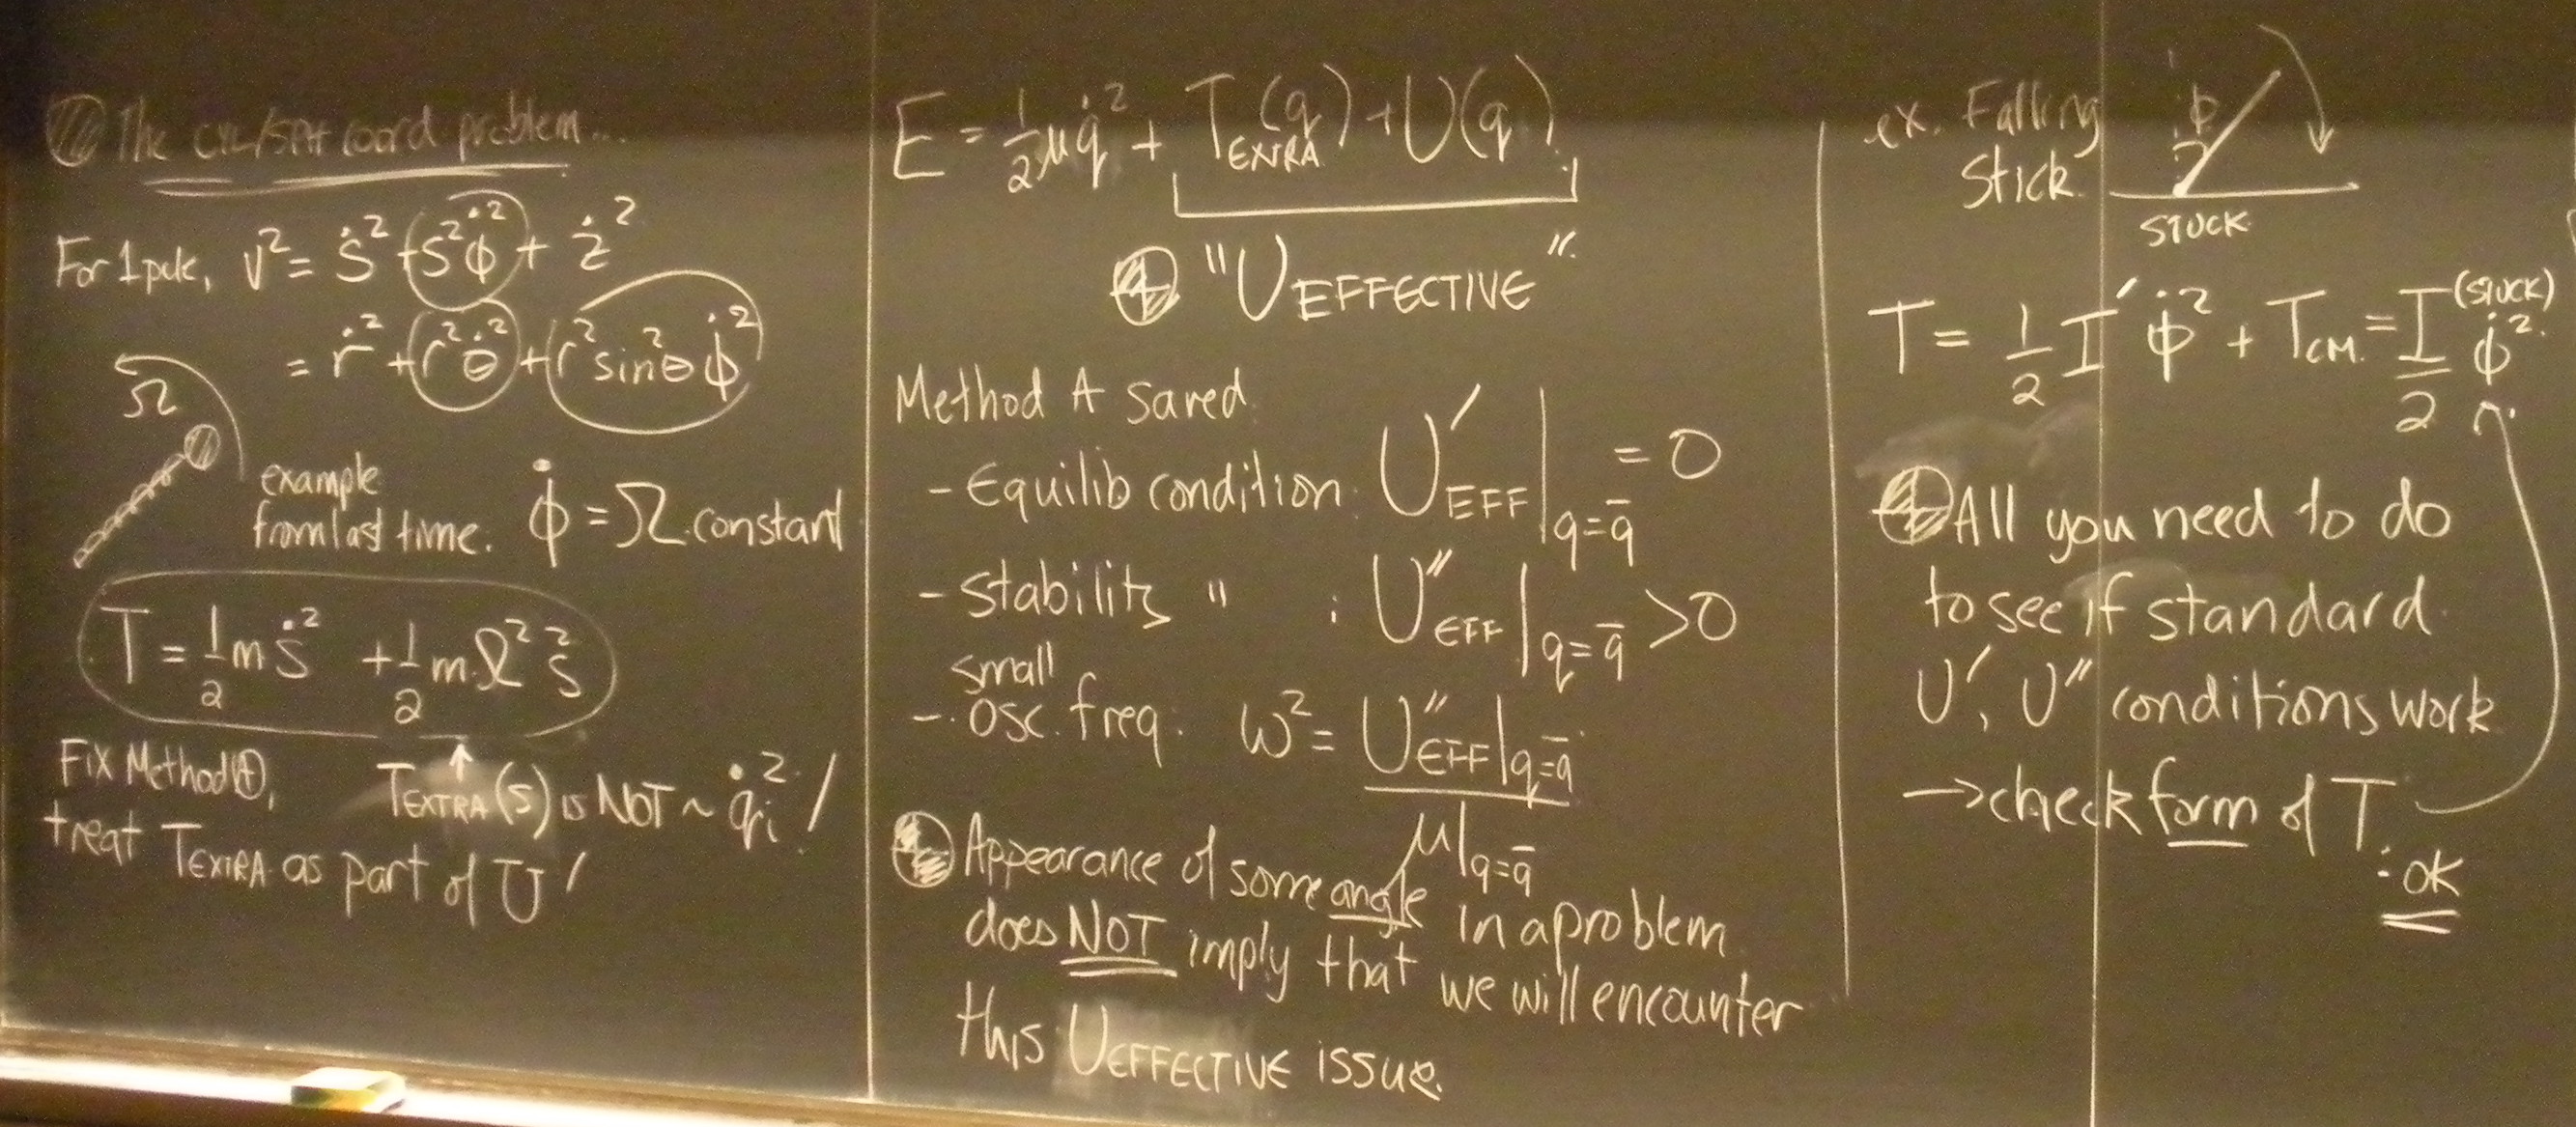 The CYL/SPH coord problem...
For 1 pcle, v² = ṡ² + s²φ̇² + ż²
= ṙ² + r²θ̇² + r²sin²θ φ̇²
Ω
example
from last time. φ̇ = Ω constant
T = 1/2 m ṡ² + 1/2 m Ω² s²
Fix Method Ⓐ,
treat T_EXTRA as part of U!
↑
T_EXTRA(s) is NOT ~ q̇ᵢ²!
E = 1/2 μ q̇² + T_EXTRA(q) + U(q)
"U_EFFECTIVE"
Method A saved
- Equilib condition: U′_EFF|_q=q̄ = 0
- Stability " : U″_EFF|_q=q̄ > 0
small
- osc. freq: ω² = U″_EFF|_q=q̄
μ|_q=q̄
Appearance of some angle in a problem
does NOT imply that we will encounter
this U_EFFECTIVE issue.
ex. Falling
Stick.
φ
STUCK
T = 1/2 I′ φ̇² + T_CM = I^(STUCK)/2 φ̇²
All you need to do
to see if standard
U′, U″ conditions work
→ check form of T.
: OK